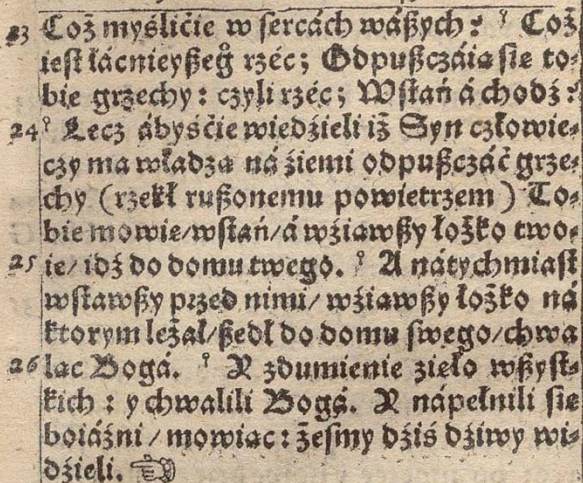 Coż myślićie w sercách wászych: Coż
23 iest łácnieyszeg̊ rzéc; Odpuszczáią się to-
bie grzechy: czyli rzéc; Wstań á chodź:
24 Lecz ábyśćie wiedźieli iż Syn człowie-
czy ma władzą ná źiemi odpuszczáć grze-
chy (rzekł ruszonemu powietrzem) To-
bie mowię/wstań/á wźiąwszy łożko two-
25 ie/ idź do domu twego. A nátychmiast
wstawszy przed nimi/ wźiąwszy łożko ná
ktorym leżał/szedł do domu swego/chwa
26 ląc Bogá. Y zdumienie zięło wszyst-
kich: y chwalili Bogá. Y nápełnili się
boiáźni/mowiąc: żeśmy dźiś dźiwy wi-
dźieli.